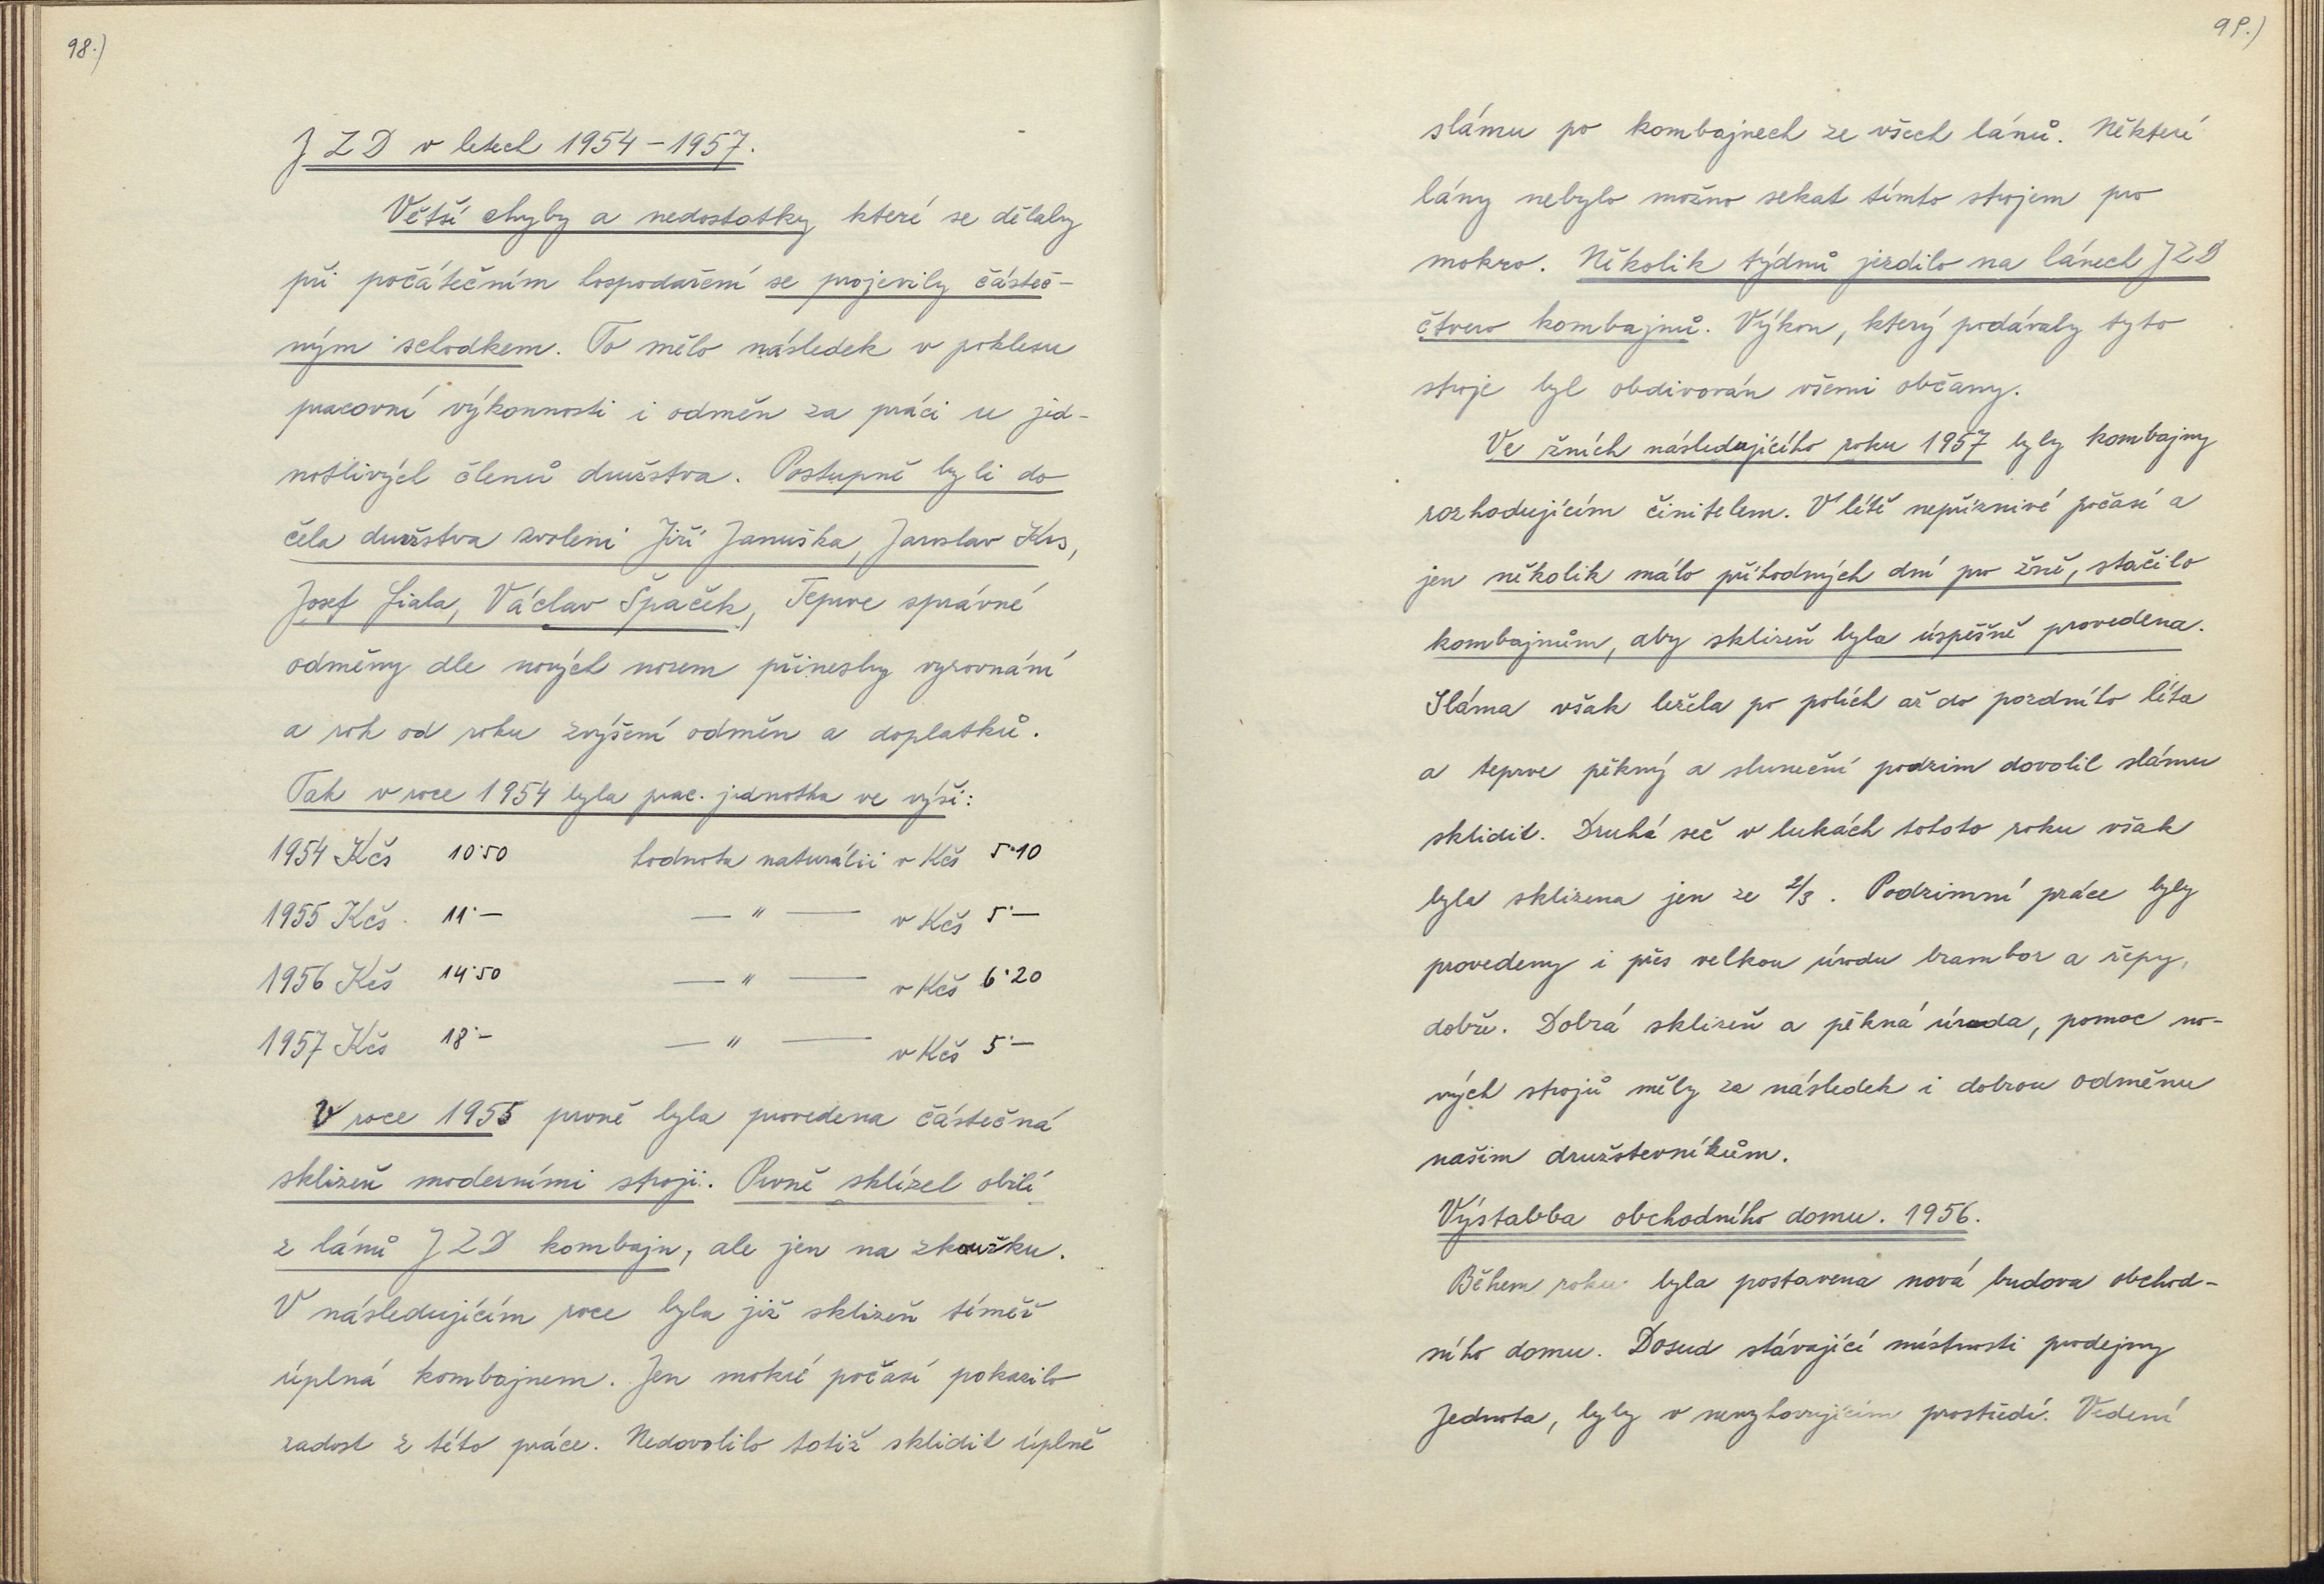 98.)
JZD v letech 1954-1957.
Větší chyby a nedostatky které se dělaly
při počátečním hospodaření se projevily částeč-
ným schodkem. To mělo následek v poklesu
pracovní výkonnosti i odměn za práci u jed-
notlivých členů družstva. Postupně byli do
čela družstva zvoleni Jiří Januška, Jaroslav Krs,
Josef Fiala, Václav Špaček, Teprve správné
odměny dle nových norem přinesly vyrovnání
a rok od roku zvýšení odměn a doplatků.
Tak v roce 1954 byla prac. jednotka ve výši:
1954 Kčs 10·50 hodnota naturálií v Kčs 5·10
1955 Kčs 11·— — " — v Kčs 5·—
1956 Kčs 14·50 — " — v Kčs 6·20
1957 Kčs 18·— — " — v Kčs 5·—
V roce 1955 prvně byla provedena částečná
sklizeň moderními stroji. Prvně sklízel obilí
z lánů JZD kombajn, ale jen na zkoužku.
V následujícím roce byla již sklizeň téměř
úplná kombajnem. Jen mokré počasí pokazilo
radost z této práce. Nedovolilo totiž sklidit úplně
99.)
slámu po kombajnech ze všech lánů. Některé
lány nebylo možno sekat tímto strojem pro
mokro. Několik týdnů jezdilo na lánech JZD
čtvero kombajnů. Výkon, který podávaly tyto
stroje byl obdivován všemi občany.
Ve žních následujícího roku 1957 byly kombajny
rozhodujícím činitelem. V létě nepříznivé počasí a
jen několik málo příhodných dní pro žně, stačilo
kombajnům, aby sklizeň byla úspěšně provedena.
Sláma však ležela po polích až do pozdního léta
a teprve pěkný a sluneční podzim dovolil slámu
sklidit. Druhá seč v lukách tohoto roku však
byla sklizena jen ze 2/3. Podzimní práce byly
provedeny i přes velkou úrodu brambor a řepy,
dobře. Dobrá sklizeň a pěkná úroda, pomoc no-
vých strojů měly za následek i dobrou odměnu
našim družstevníkům.
Výstabba obchodního domu. 1956.
Během roku byla postavena nová budova obchod-
ního domu. Dosud stávající místnosti prodejny
Jednota, byly v nevyhovujícím prostředí. Vedení